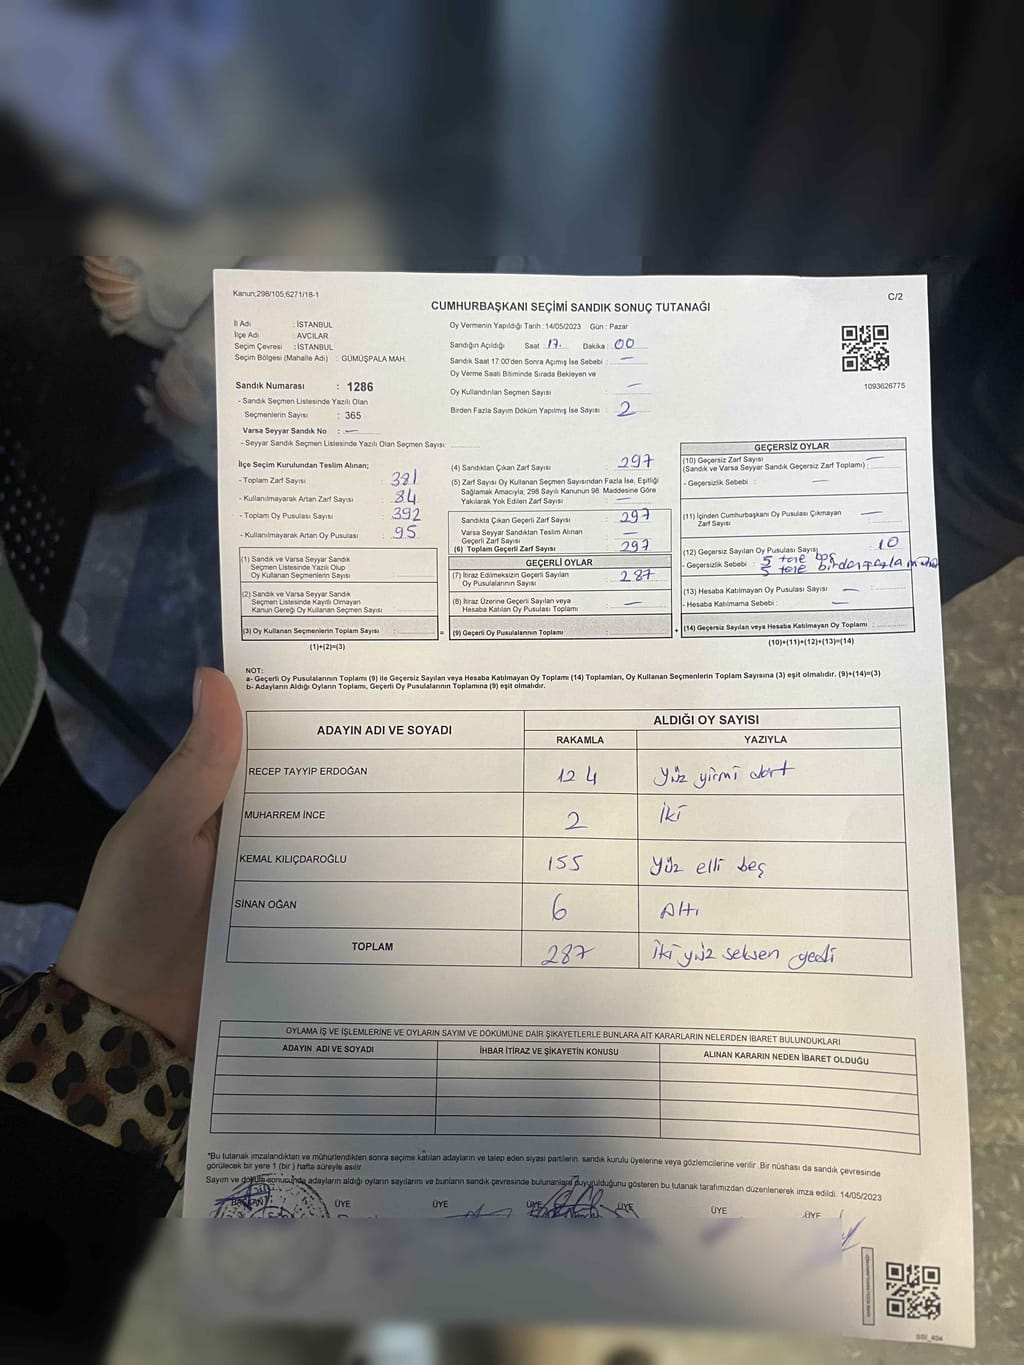 Kanun;298/105;6271/18-1
C/2
CUMHURBAŞKANI SEÇİMİ SANDIK SONUÇ TUTANAĞI
İl Adı : İSTANBUL
İlçe Adı : AVCILAR
Seçim Çevresi : İSTANBUL
Seçim Bölgesi (Mahalle Adı) : GÜMÜŞPALA MAH.
Sandık Numarası : 1286
- Sandık Seçmen Listesinde Yazılı Olan
Seçmenlerin Sayısı : 365
Varsa Seyyar Sandık No : —
- Seyyar Sandık Seçmen Listesinde Yazılı Olan Seçmen Sayısı:
Oy Vermenin Yapıldığı Tarih : 14/05/2023 Gün : Pazar
Sandığın Açıldığı Saat : 17. Dakika : 00
Sandık Saat 17:00'den Sonra Açımış İse Sebebi : —
Oy Verme Saati Bitiminde Sırada Bekleyen ve
Oy Kullandırılan Seçmen Sayısı —
Birden Fazla Sayım Döküm Yapılmış İse Sayısı : 2
1093626775
İlçe Seçim Kurulundan Teslim Alınan;
- Toplam Zarf Sayısı : 381
- Kullanılmayarak Artan Zarf Sayısı : 84
- Toplam Oy Pusulası Sayısı : 392
- Kullanılmayarak Artan Oy Pusulası : 95
(1) Sandık ve Varsa Seyyar Sandık
Seçmen Listesinde Yazılı Olup
Oy Kullanan Seçmenlerin Sayısı :
(2) Sandık ve Varsa Seyyar Sandık
Seçmen Listesinde Kayıtlı Olmayan
Kanun Gereği Oy Kullanan Seçmen Sayısı :
(3) Oy Kullanan Seçmenlerin Toplam Sayısı :
(1)+(2)=(3)
(4) Sandıktan Çıkan Zarf Sayısı : 297
(5) Zarf Sayısı Oy Kullanan Seçmen Sayısından Fazla İse, Eşitliği
Sağlamak Amacıyla, 298 Sayılı Kanunun 98. Maddesine Göre
Yakılarak Yok Edilen Zarf Sayısı : —
Sandıkta Çıkan Geçerli Zarf Sayısı : 297
Varsa Seyyar Sandıktan Teslim Alınan
Geçerli Zarf Sayısı : —
(6) Toplam Geçerli Zarf Sayısı : 297
GEÇERLİ OYLAR
(7) İtiraz Edilmeksizin Geçerli Sayılan
Oy Pusulalarının Sayısı : 287
(8) İtiraz Üzerine Geçerli Sayılan veya
Hesaba Katılan Oy Pusulası Toplamı : —
= (9) Geçerli Oy Pusulalarının Toplamı :
GEÇERSİZ OYLAR
(10) Geçersiz Zarf Sayısı —
(Sandık ve Varsa Seyyar Sandık Geçersiz Zarf Toplamı) :
- Geçersizlik Sebebi : —
(11) İçinden Cumhurbaşkanı Oy Pusulası Çıkmayan —
Zarf Sayısı :
(12) Geçersiz Sayılan Oy Pusulası Sayısı : 10
- Geçersizlik Sebebi : 5 tane boş
5 tane birden fazla mühür
(13) Hesaba Katılmayan Oy Pusulası Sayısı : —
- Hesaba Katılmama Sebebi : —
+ (14) Geçersiz Sayılan veya Hesaba Katılmayan Oy Toplamı :
(10)+(11)+(12)+(13)=(14)
NOT:
a- Geçerli Oy Pusulalarının Toplamı (9) ile Geçersiz Sayılan veya Hesaba Katılmayan Oy Toplamı (14) Toplamları, Oy Kullanan Seçmenlerin Toplam Sayısına (3) eşit olmalıdır. (9)+(14)=(3)
b- Adayların Aldığı Oyların Toplamı, Geçerli Oy Pusulalarının Toplamına (9) eşit olmalıdır.
ADAYIN ADI VE SOYADI
ALDIĞI OY SAYISI
RAKAMLA YAZIYLA
RECEP TAYYİP ERDOĞAN 124 Yüz yirmi dört
MUHARREM İNCE 2 İki
KEMAL KILIÇDAROĞLU 155 Yüz elli beş
SİNAN OĞAN 6 Altı
TOPLAM 287 İki yüz seksen yedi
OYLAMA İŞ VE İŞLEMLERİNE VE OYLARIN SAYIM VE DÖKÜMÜNE DAİR ŞİKAYETLERLE BUNLARA AİT KARARLARIN NELERDEN İBARET BULUNDUKLARI
ADAYIN ADI VE SOYADI İHBAR İTİRAZ VE ŞİKAYETİN KONUSU ALINAN KARARIN NEDEN İBARET OLDUĞU
*Bu tutanak imzalandıktan ve mühürlendikten sonra seçime katılan adayların ve talep eden siyasi partilerin sandık kurulu üyelerine veya gözlemcilerine verilir. Bir nüshası da sandık çevresinde
görülecek bir yere 1 (bir) hafta süreyle asılır
Sayım ve döküm sonucunda adayların aldığı oyların sayılarını ve bunların sandık çevresinde bulunanlara duyurulduğunu gösteren bu tutanak tarafımızdan düzenlenerek imza edildi. 14/05/2023
BAŞKAN ÜYE ÜYE ÜYE ÜYE ÜYE ÜYE
SSI_404